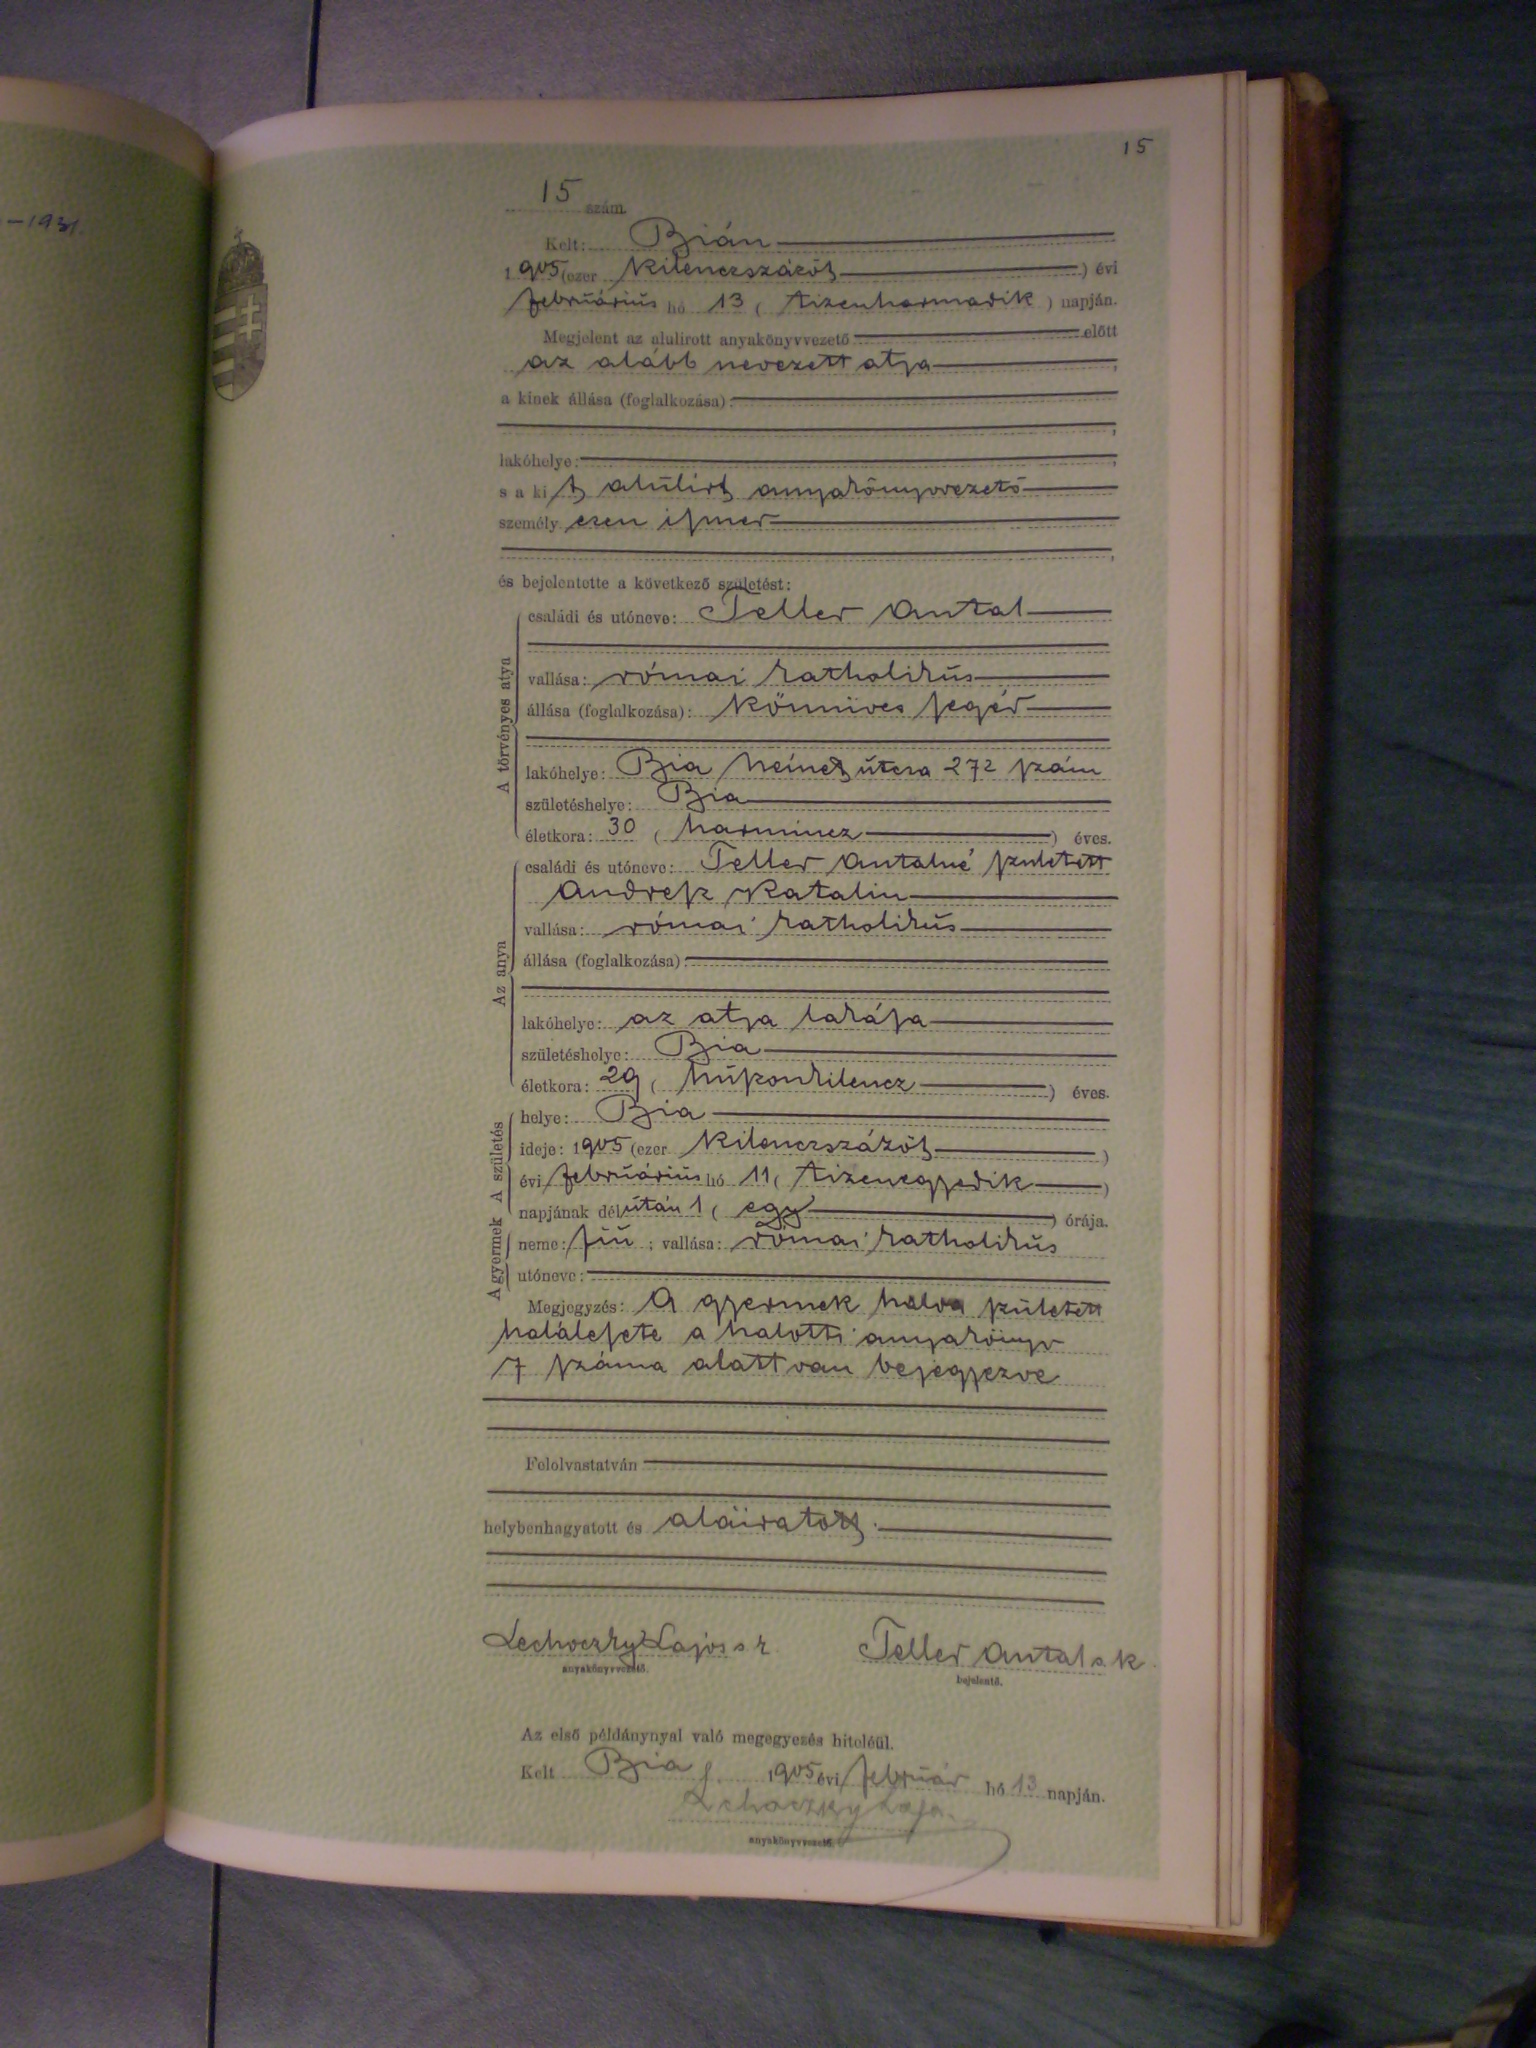 15
-1931.
15 szám.
Kelt: Bián
1905 (ezer kilenczszázöt ) évi
februárius hó 13 ( tizenharmadik ) napján.
Megjelent az alulirott anyakönyvvezető előtt
az alább nevezett atya ,
a kinek állása (foglalkozása):
lakóhelye: ,
s a kit alulirt anyakönyvvezető
személyesen ismer
,
és bejelentette a következő születést:
A törvényes atya
családi és utóneve: Teller Antal
vallása: római katholikus
állása (foglalkozása): kőmives segéd
lakóhelye: Bia Német útcza 272 szám
születéshelye: Bia
életkora: 30 ( harmincz ) éves.
Az anya
családi és utóneve: Teller Antalné született
Andresz Katalin
vallása: római katholikus
állása (foglalkozása):
lakóhelye: az atya lakása
születéshelye: Bia
életkora: 29 ( huszonkilencz ) éves.
A születés
helye: Bia
ideje: 1905 (ezer kilenczszázöt )
évi februárius hó 11 ( tizenegyedik )
napjának délután 1 ( egy ) órája.
A gyermek
neme: fiú ; vallása: római katholikus
utóneve:
Megjegyzés: A gyermek halva született
halálesete a halotti anyakönyv
7 száma alatt van bejegyezve
Felolvastatván
helybenhagyatott és aláiratott.
Lechoczky Lajos s k. Teller Antal s k.
anyakönyvvezető. bejelentő.
Az első példánynyal való megegyezés hiteléül.
Kelt Bia, 1905 évi február hó 13 napján.
Lechoczky Lajos
anyakönyvvezető.